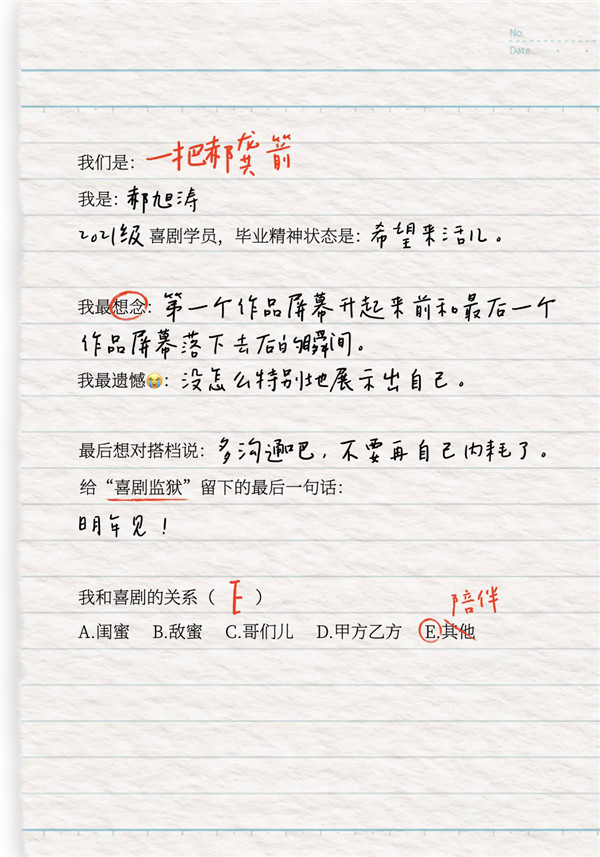 No.
Date
我们是：一把郝龚箭
我是：郝旭涛
2021级 喜剧学员，毕业精神状态是：希望来活儿。
我最想念：第一个作品屏幕升起来前和最后一个
作品屏幕落下去后的瞬间。
我最遗憾😭：没怎么特别地展示出自己。
最后想对搭档说：多沟通吧，不要再自己内耗了。
给“喜剧监狱”留下的最后一句话：
明年见！
我和喜剧的关系（ E ）
陪伴
A.闺蜜 B.敌蜜 C.哥们儿 D.甲方乙方 E.其他